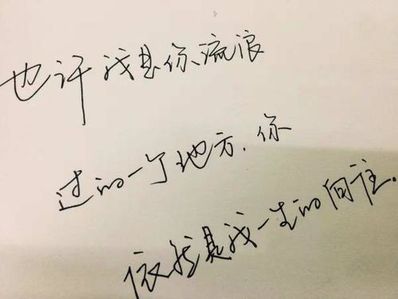 也许我是你流浪
过的一个地方，你
依然是我一生的向往.